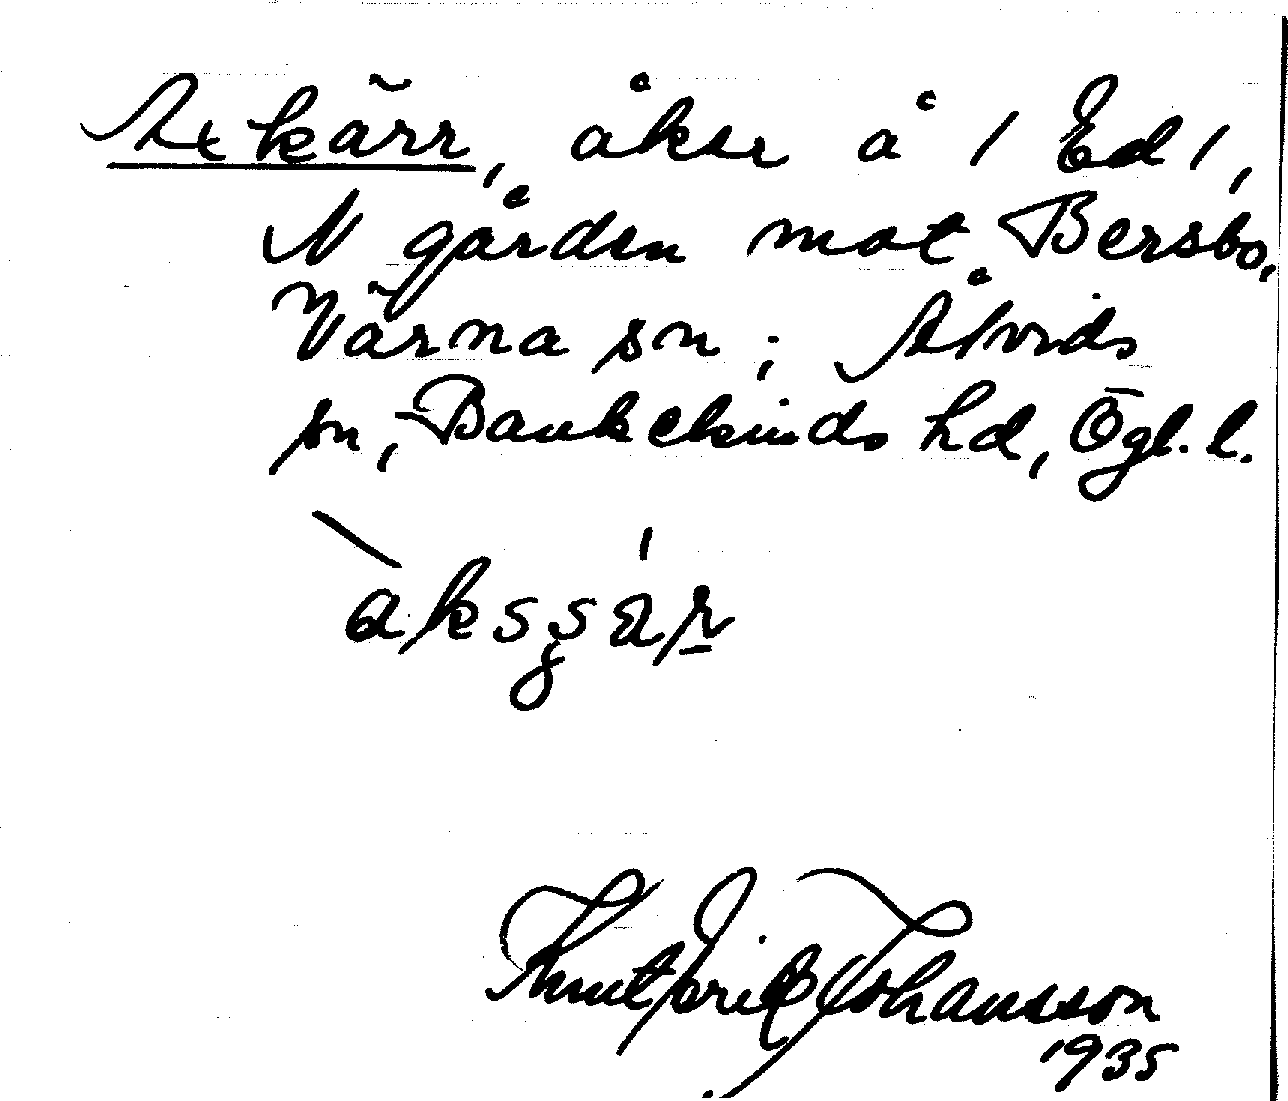 Axkärr, åker å 1 Ed 1,
N gården mot Bersbo,
Värna sn; Åtvids
sn, Bankekinds hd, Ögl. l.
Knut Erik Johansson
1935